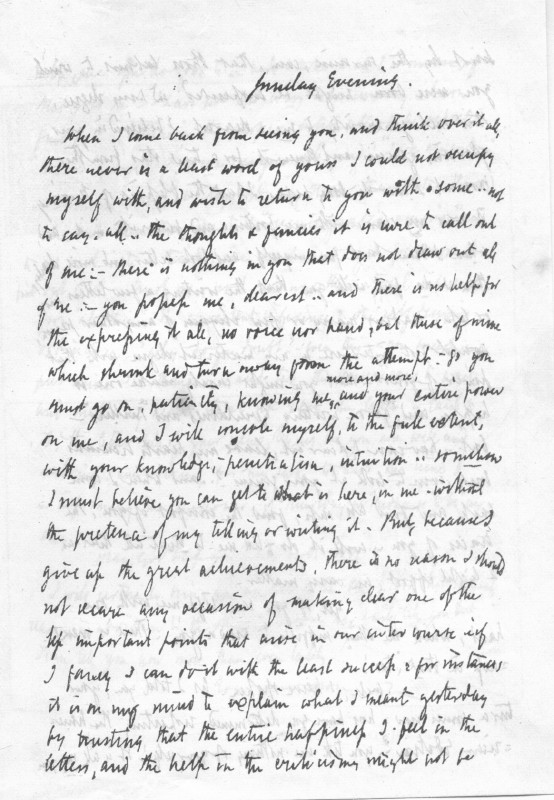 Sunday Evening.
When I come back from seeing you, and think over it all,
there never is a least word of yours I could not occupy
myself with, and wish to return to you with some .. not
to say, all .. the thoughts & fancies it is sure to call out
of me: – there is nothing in you that does not draw out all
of me: – you possess me, dearest .. and there is no help for
the expressing it all, no voice nor hand, but these of mine
which shrink and turn away from the attempt. – So you
must go on, patiently, knowing me more and more, and your entire power
on me, and I will console myself, to the full extent,
with your knowledge, penetration, intuition .. somehow
I must believe you can get to what is here, in me, without
the pretence of my telling or writing it. But, because I
give up the great achievements, there is no reason I should
not secure any occasion of making clear one of the
less important points that arise in our intercourse .. if
I fancy I can do it with the least success: for instance,
it is on my mind to explain what I meant yesterday
by trusting that the entire happiness I feel in the
letters, and the help in the criticising might not be